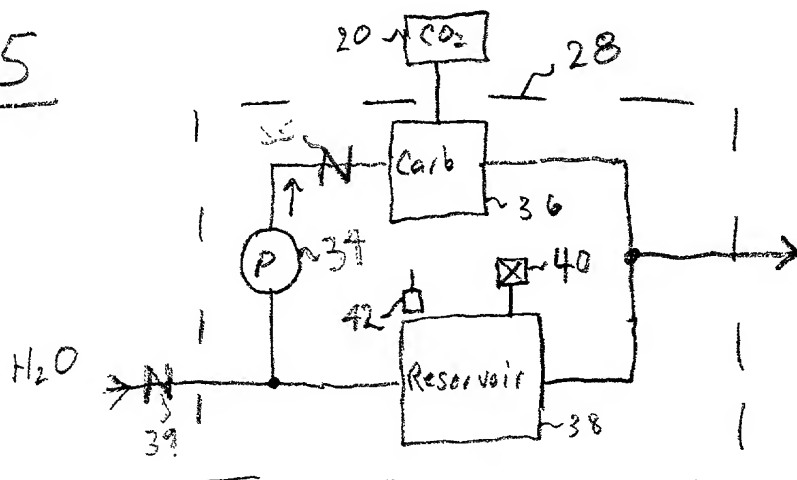 5
20 CO2 28
Carb
36
P 34
40
42
H2O
Reservoir
39
38